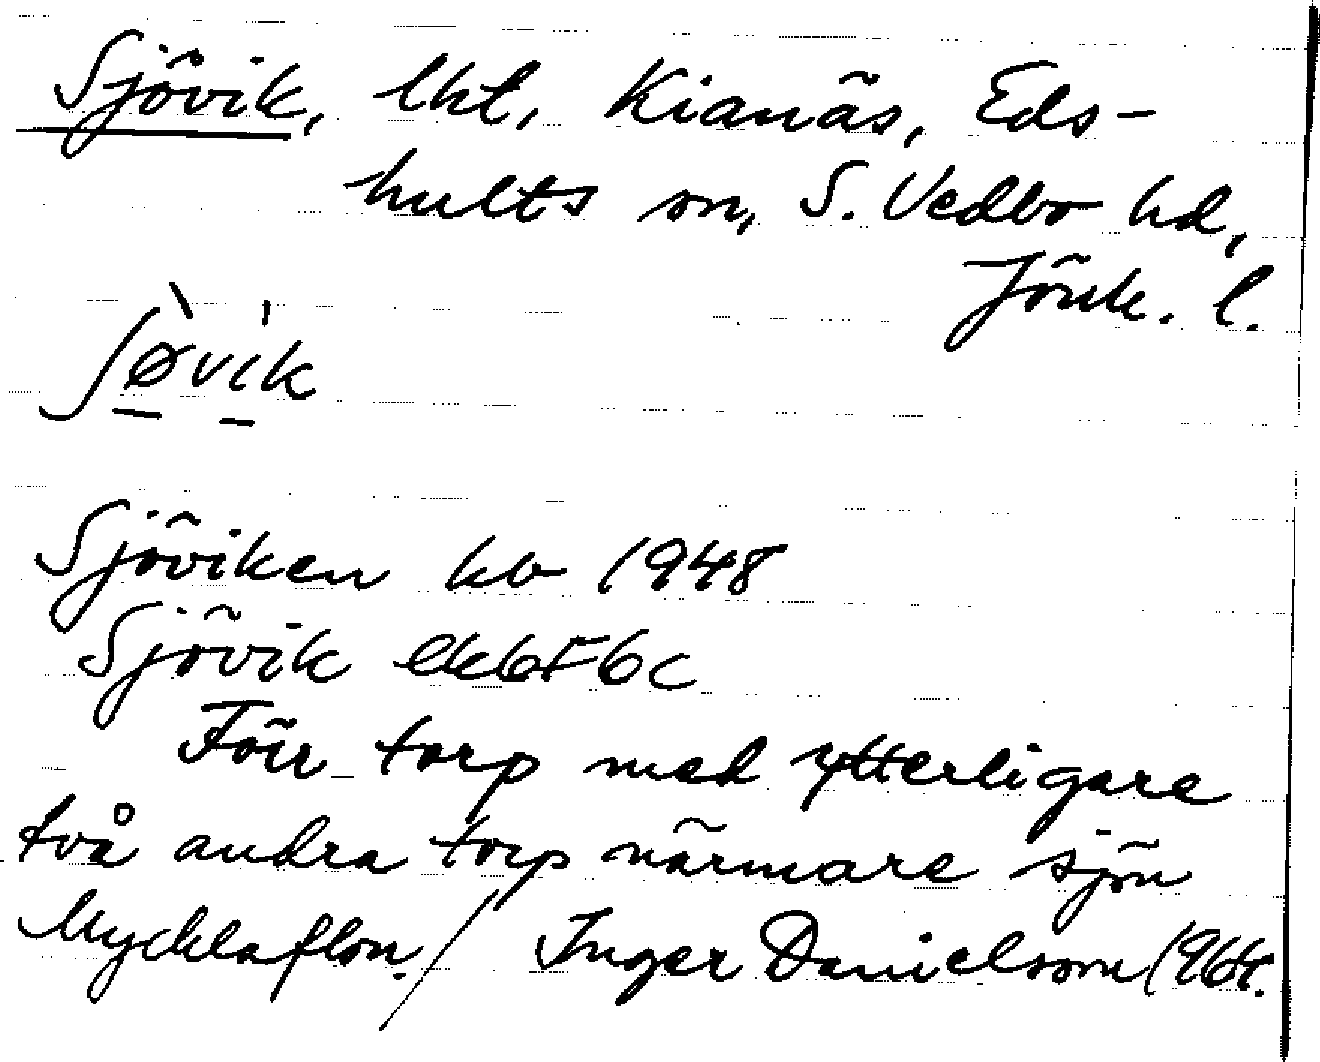 Sjövik, lht, Kianäs, Eds-
hults sn, S. Vedbo hd,
Jönk. l.
ʃø̀vìk
Sjöviken kb 1948
Sjövik ekbF6c
Förr torp med ytterligare
två andra torp närmare sjön
Mycklaflon. / Inger Danielsson 1964.